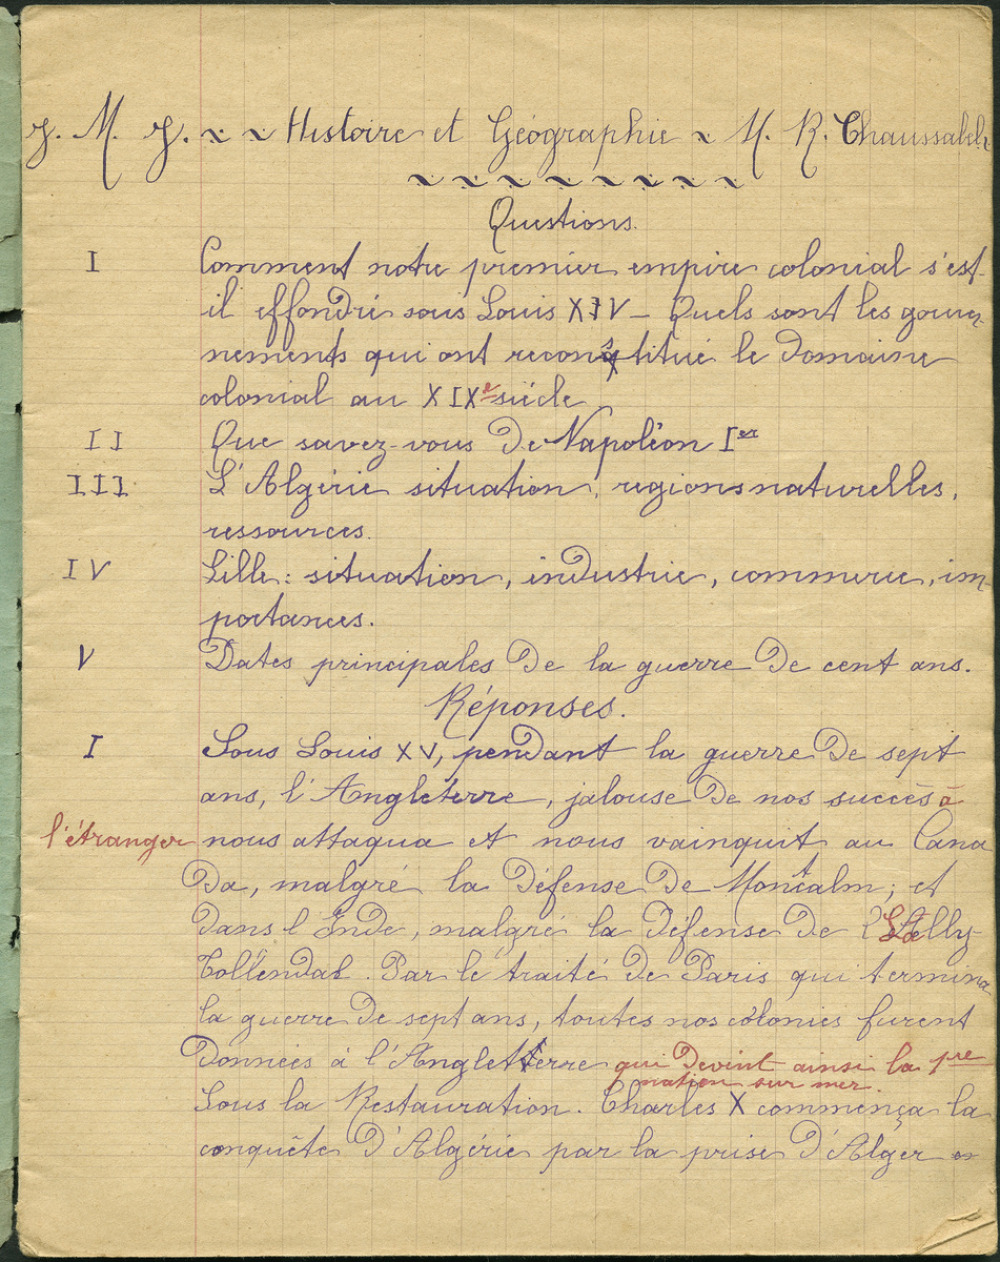 J. M. J. ~ ~ Histoire et Géographie ~ M. R. Chaussalel
Questions.
I Comment notre premier empire colonial s'est-
il effondré sous Louis XIV – Quels sont les gouver
nements qui ont reconstitué le domaine
colonial au XIXe siècle
II Que savez-vous de Napoléon Ier
III L'Algérie situation, régions naturelles,
ressources.
IV Lille : situation, industrie, commerce, im-
portances.
V Dates principales de la guerre de cent ans.
Réponses.
I Sous Louis XV, pendant la guerre de sept
ans, l'Angleterre, jalouse de nos succès à
l'étranger nous attaqua et nous vainquit au Cana
da, malgré la défense de Montcalm; et
dans l'Inde, malgré la défense de Lally-
Tollendal. Par le traité de Paris qui termina
la guerre de sept ans, toutes nos colonies furent
données à l'Angleterre qui devint ainsi la 1re
nation sur mer.
Sous la Restauration. Charles X commença la
conquête d'Algérie par la prise d'Alger en